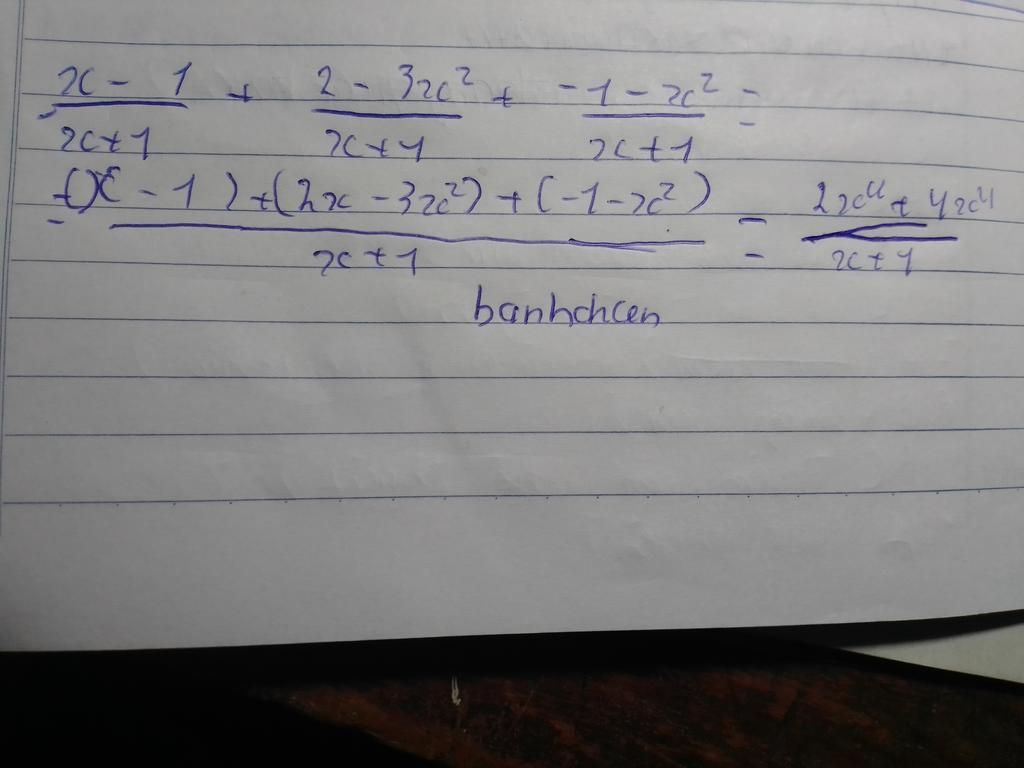 x - 1 / x + 1 + 2 - 3x² / x + 1 + -1 - x² / x + 1 =
= (x - 1) + (2x - 3x²) + (-1 - x²) / x + 1 = 2x⁴ + 4x⁴ / x + 1
banhchcen